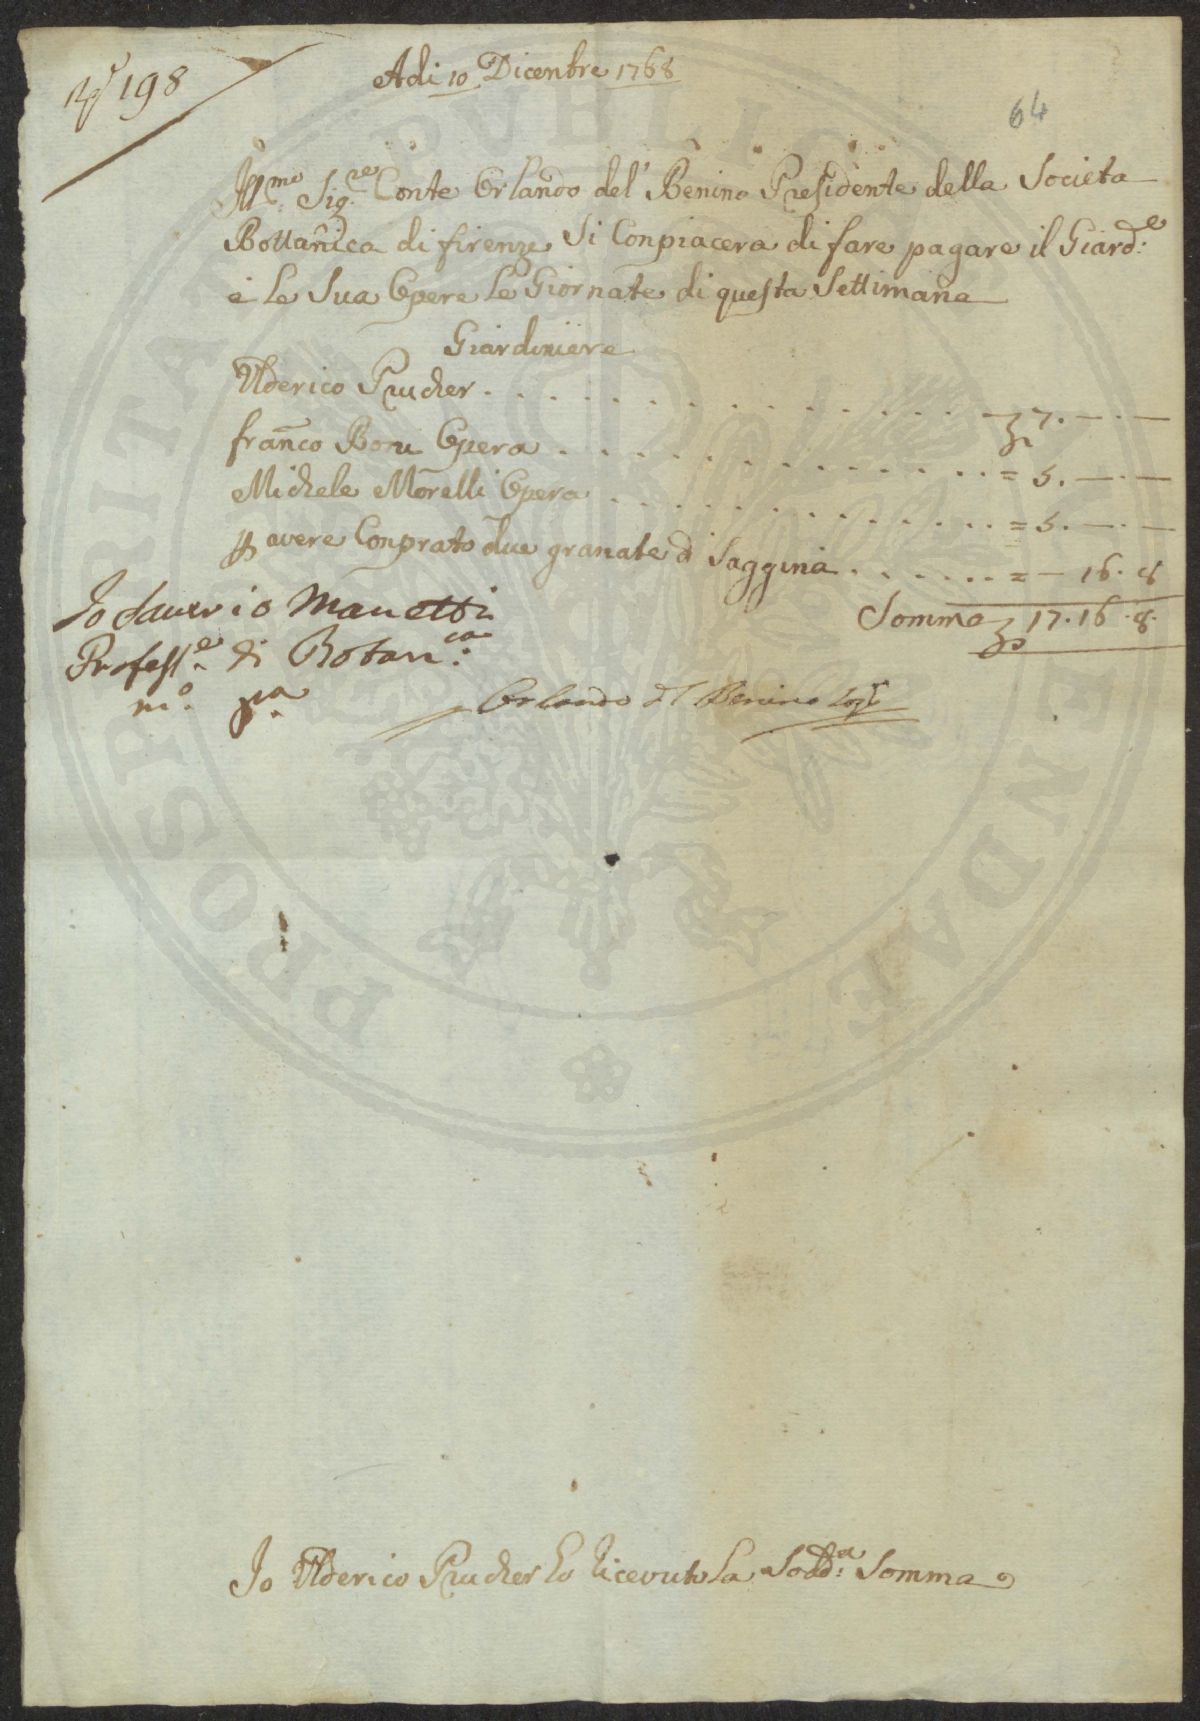 N.º 198
Adi 10 Dicenbre 1768
64
Ill.mo Sig.re Conte Orlando del' Benino Presidente della Societa
Bottanica di firenze Si Conpiacera di fare pagare il Giard:e
e le Sua Opere le Giornate di questa Settimana
Giardiniere
Ulderico Prucher . . . . . . . . . . . . . . . . 7. — . —
franco Boni Opera . . . . . . . . . . . . . = 5. — . —
Michele Morelli Opera . . . . . . . . . . . . = 5. — . —
p avere Conprato due granate di Saggina . . . . . . = — 16. 8
Somma 17. 16. 8.
Io Saverio Manetti
Profess.e di Botan:ca
m.o p.a
Orlando del Benino
Io Ulderico Prucher ho ricevuto la Sodd:a Somma
PROSPERITATI PUBLICAE AUGENDAE